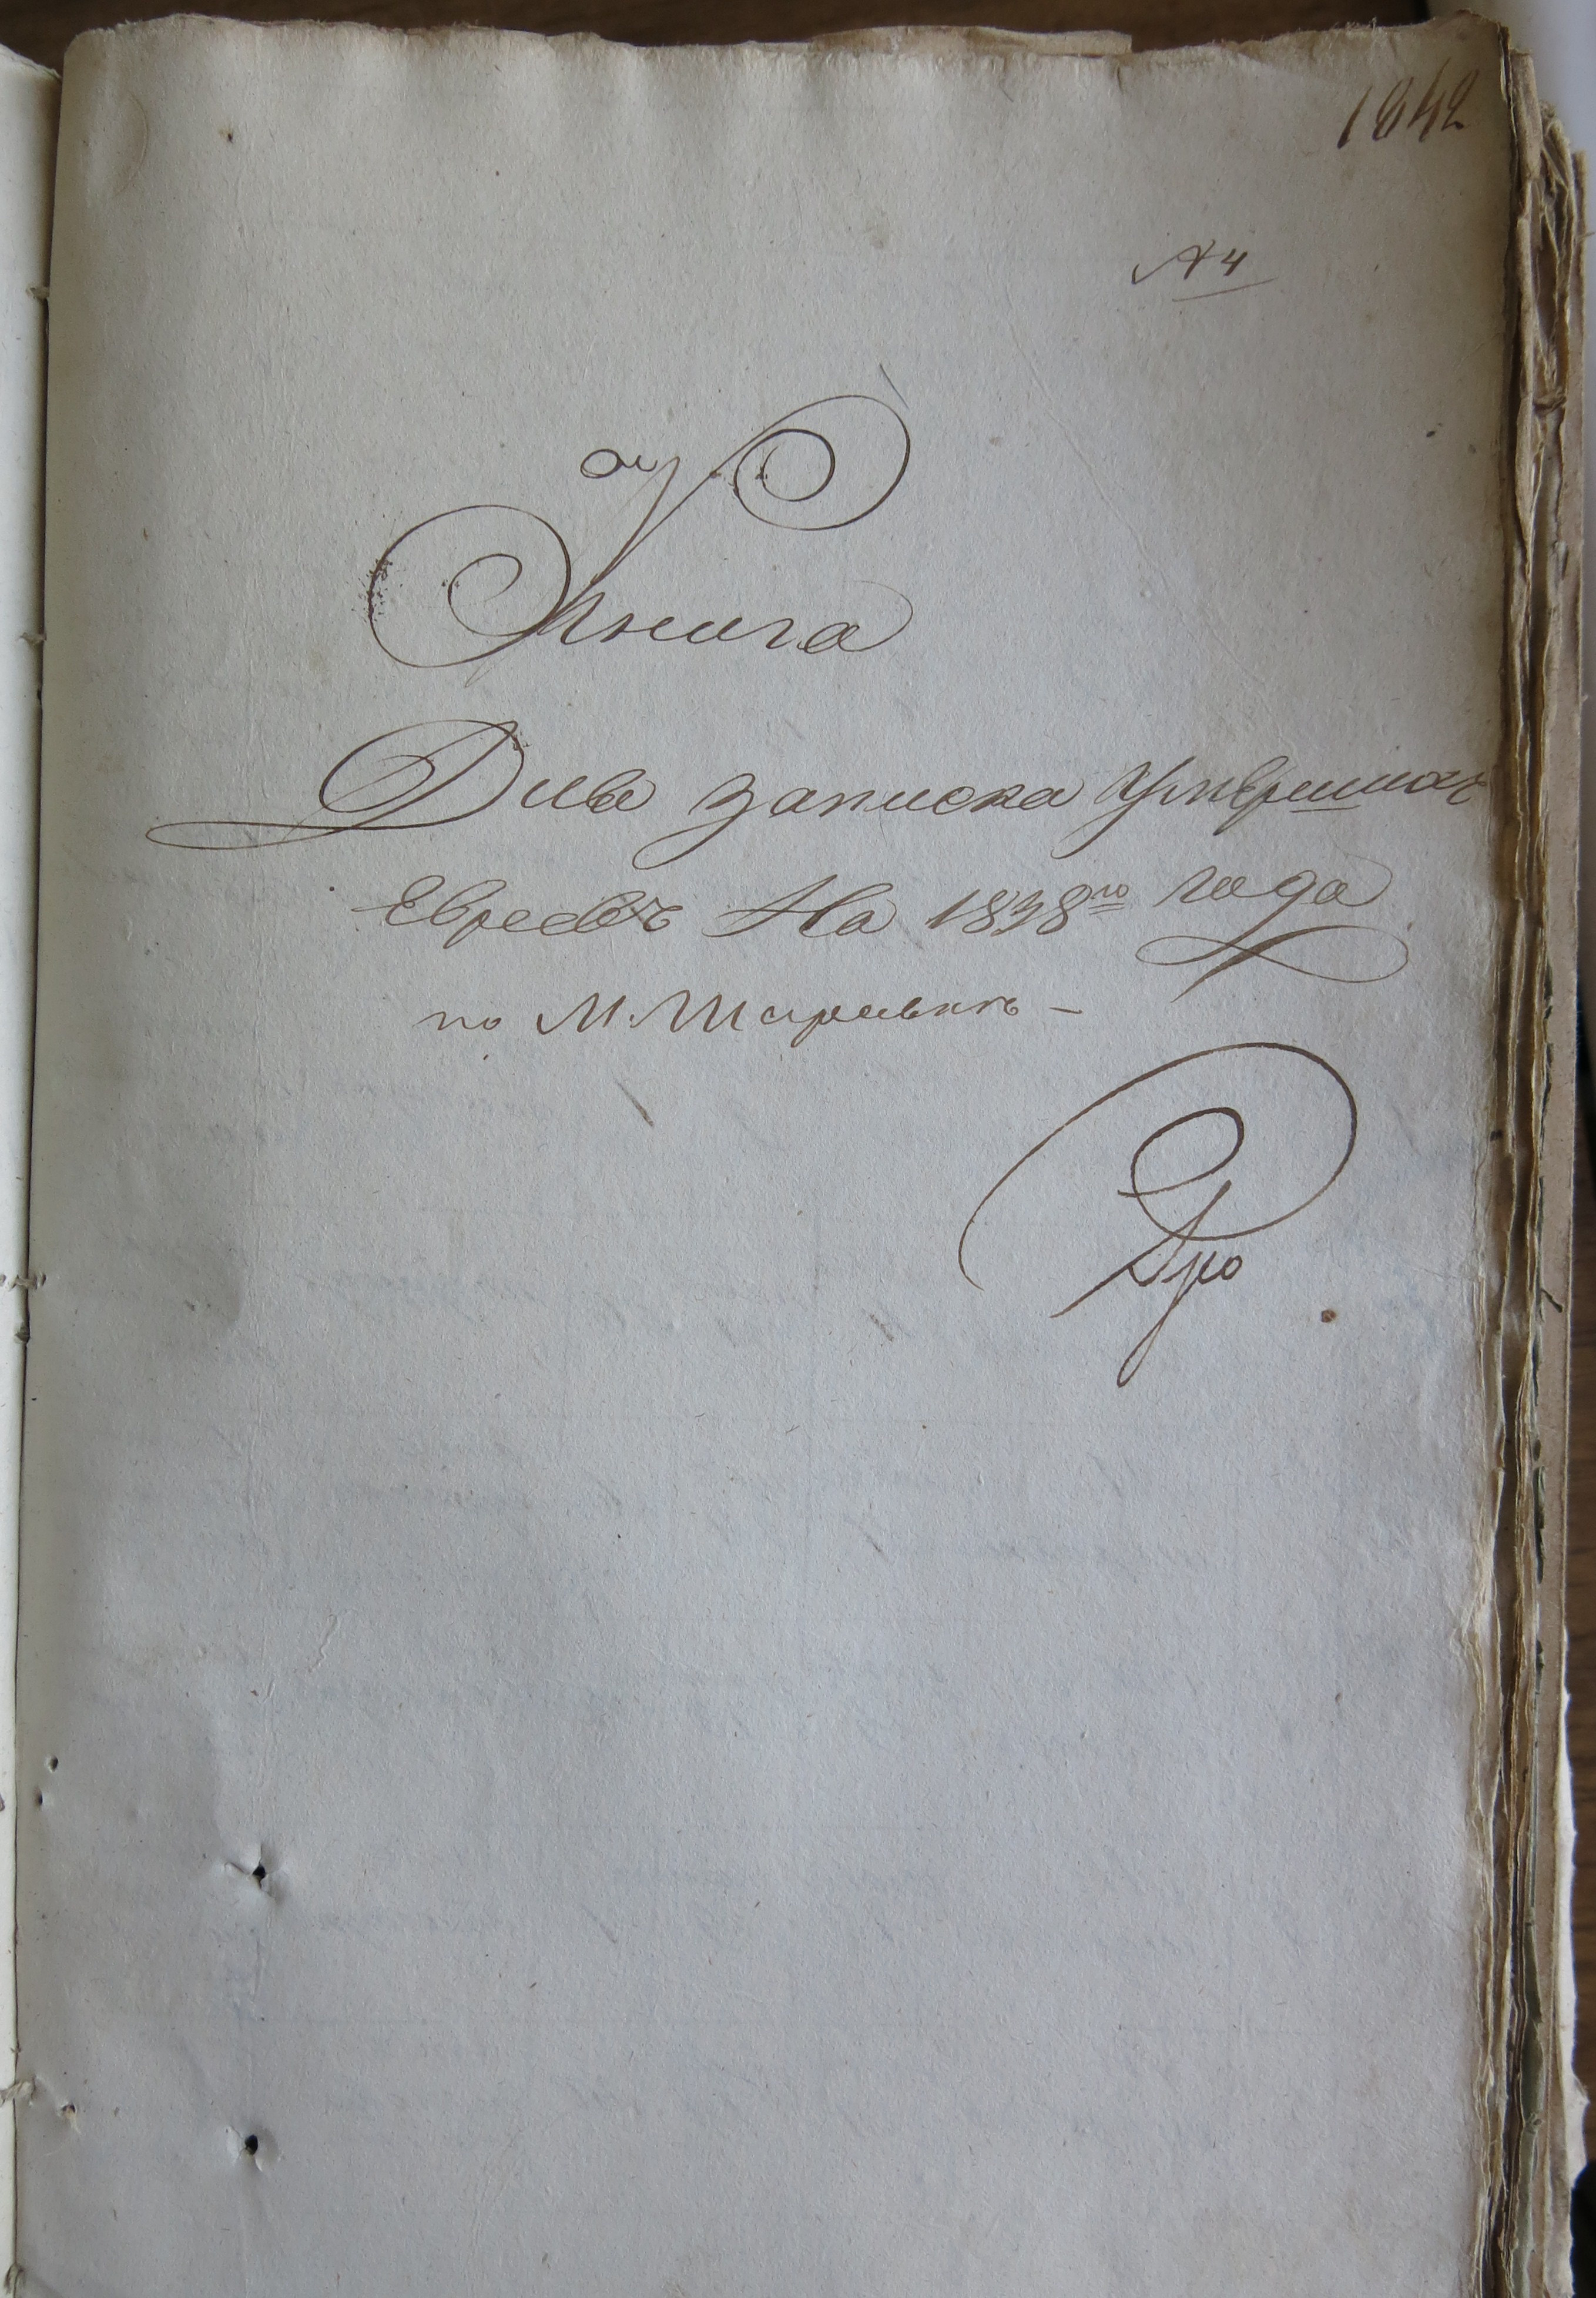 1842
№ 4
Книга
Для записка Умершихъ
Евреевъ На 1838го года
по М. Шаръ